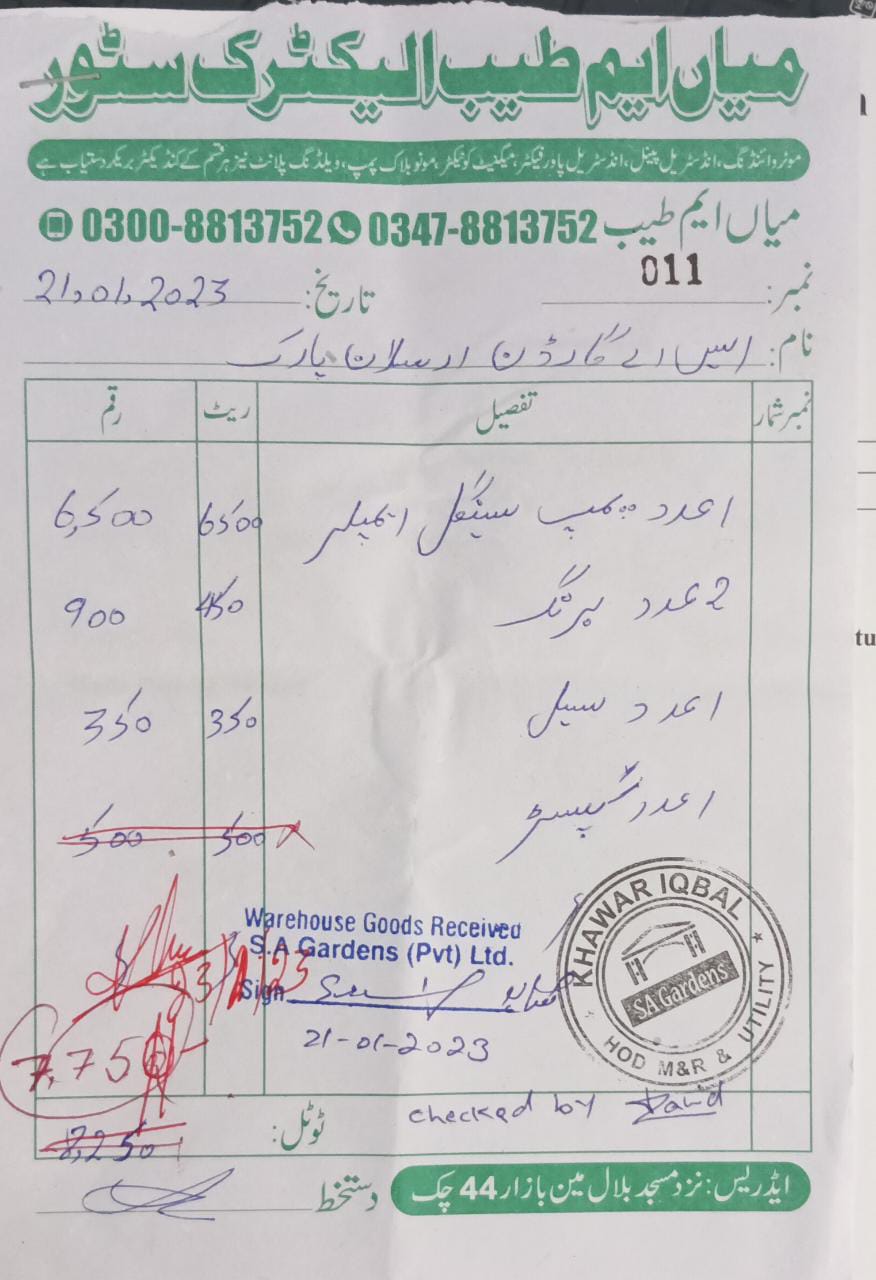 میاں ایم طیب الیکٹرک سٹور
موٹر وائنڈنگ، انڈسٹریل پینل، انڈسٹریل پاور فیکٹر، میگنیٹ کونیکٹر، مونوبلاک پمپ، ویلڈنگ پلانٹ نیز ہر قسم کے کنڈیکٹر بریکر دستیاب ہے
میاں ایم طیب 0347-8813752 0300-8813752
نمبر: 011 تاریخ: 21,01,2023
نام: ایس اے گارڈن ارسلان پارک
نمبر شمار تفصیل ریٹ رقم
1 عدد پمپ سینگل ایمپلر 6500 6,500
2 عدد بیرنگ 450 900
1 عدد سیل 350 350
1 عدد 500 500
Warehouse Goods Received
S.A Gardens (Pvt) Ltd.
Sign
21-01-2023
23/1/23
KHAWAR IQBAL
SA Gardens
HOD M&R & UTILITY
7,750
checked by
ٹوٹل: 8,250
دستخط
ایڈریس: نزد مسجد بلال مین بازار 44 چک
tu